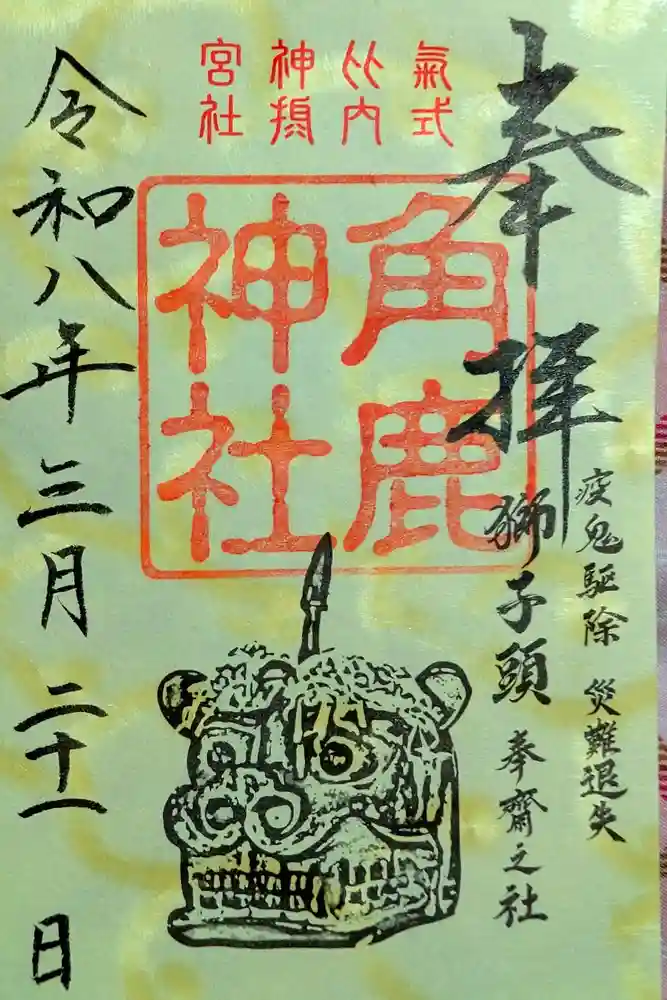 奉拝
疫鬼驅除 災難退失
獅子頭 奉齋之社
氣比神宮
式内摂社
角鹿
神社
令和八年三月二十一日